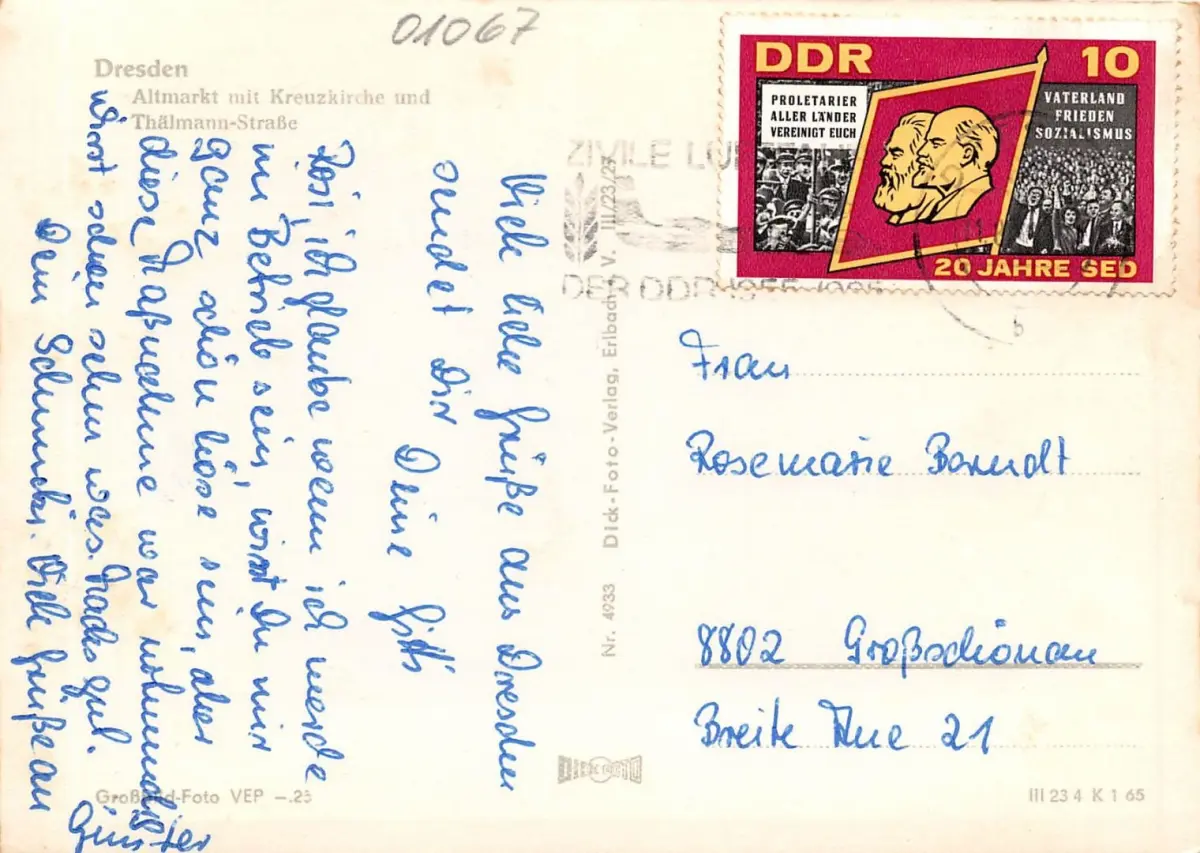 01067
Dresden
Altmarkt mit Kreuzkirche und
Thälmann-Straße
DDR 10
PROLETARIER
ALLER LÄNDER
VEREINIGT EUCH
VATERLAND
FRIEDEN
SOZIALISMUS
20 JAHRE SED
ZIVILE
DER DDR 1955
b
Viele liebe Grüße aus Dresden
sendet Dir
Deine
Rosi, ich glaube wenn ich werde
im Betrieb sein, wirst Du mir
ganz schön böse sein, aber
diese Maßnahme war notwendig
wirst schon sehn was. Machs gut.
Dein Schnucki. Viele Grüße an
Günter
Nr. 4933 Dick-Foto-Verlag, Erlbach i. V. III/23/27
Frau
Rosemarie Berndt
8802 Großschönau
Breite Aue 21
DICK FOTO
Großbild-Foto VEP -.25
III 23 4 K 1 65